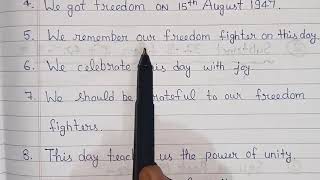 4. We got freedom on 15th August 1947.
5. We remember our freedom fighter on this day.
6. We celebrate this day with joy.
7. We should be grateful to our freedom
fighters.
8. This day teaches us the power of unity.